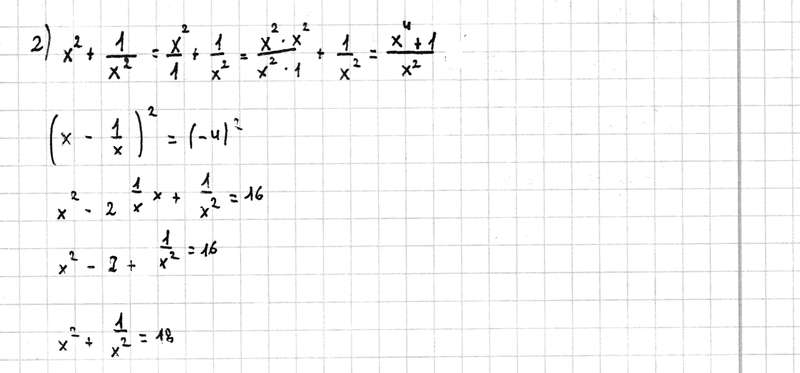 2) x² + 1/x² = x²/1 + 1/x² = x²·x²/x²·1 + 1/x² = x⁴+1/x²
(x - 1/x)² = (-4)²
x² - 2 1/x x + 1/x² = 16
x² - 2 + 1/x² = 16
x² + 1/x² = 18